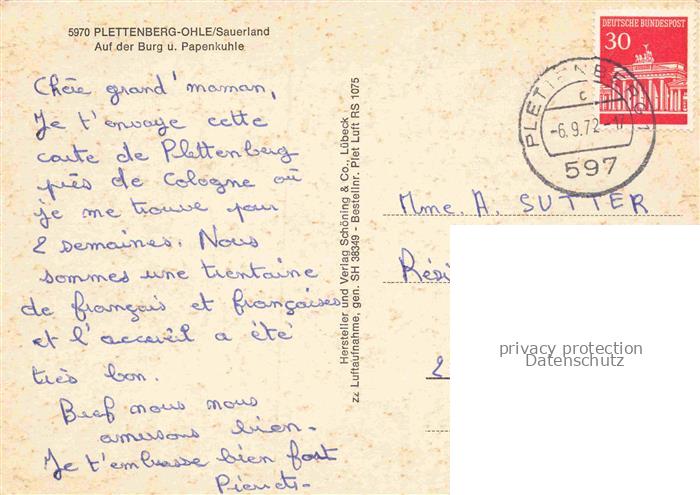 5970 PLETTENBERG-OHLE/Sauerland
Auf der Burg u. Papenkuhle
Chère grand'maman,
Je t'envoye cette
carte de Plettenberg
près de Cologne où
je me trouve pour
2 semaines. Nous
sommes une trentaine
de français et françaises
et l'accueil a été
très bon.
Bref nous nous
amusons bien.
Je t'embrasse bien fort
Hersteller und Verlag Schöning & Co., Lübeck
zz Luftaufnahme, gen. SH 38349 - Bestellnr. Plet Luft RS 1075
DEUTSCHE BUNDESPOST
30
PLETTENBERG 1
c
-6.9.72-17
597
Mme. A. SUTTER
Rési
2
privacy protection
Datenschutz